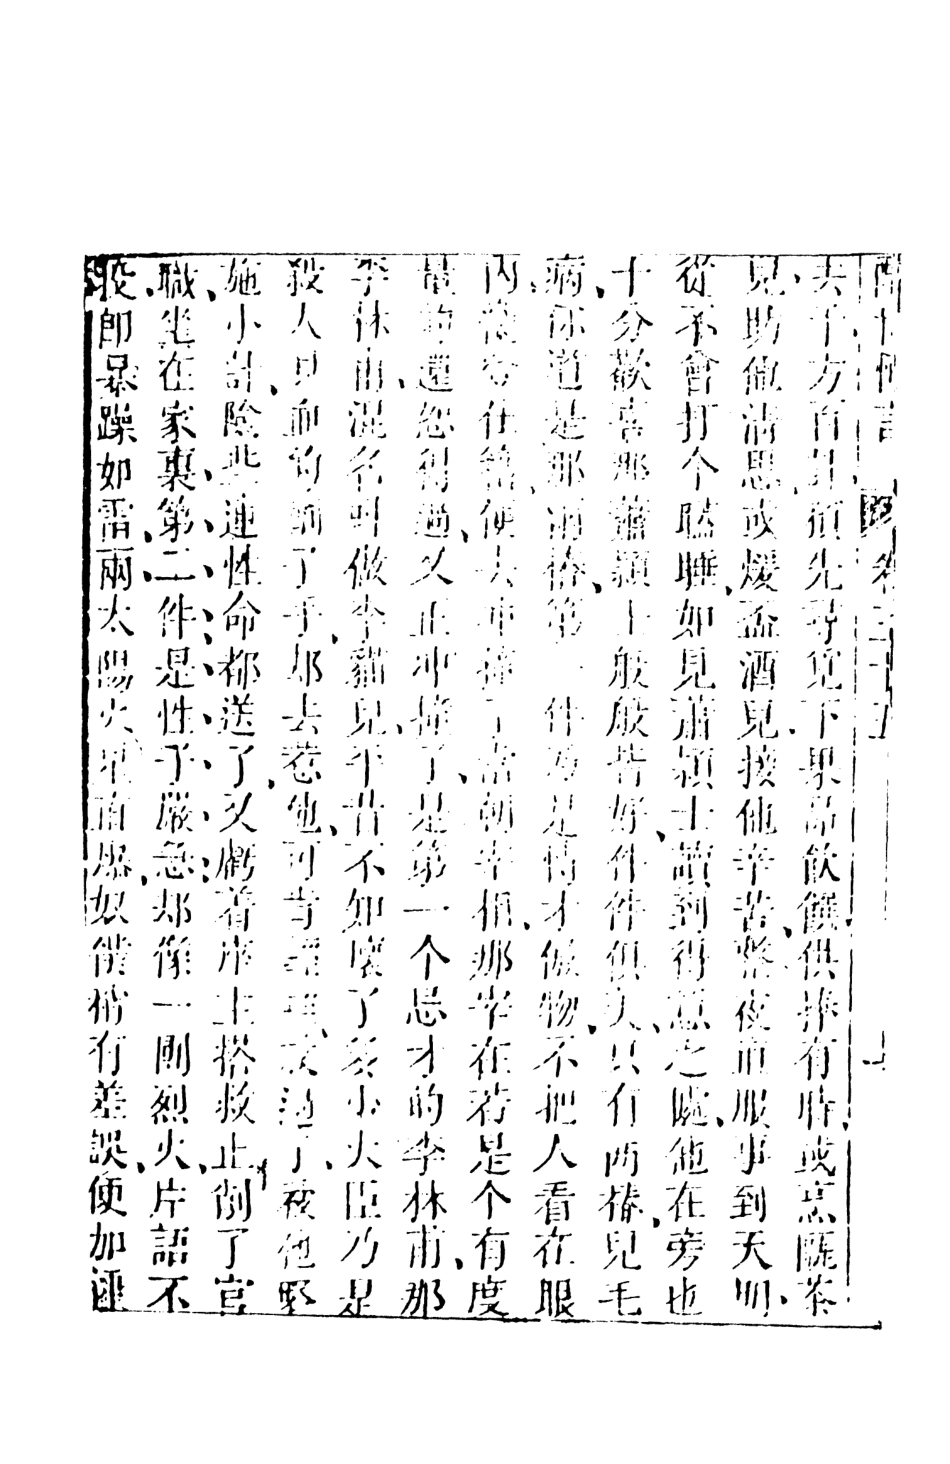 醒世恒言 卷三十五
去千方百計預先尋覓下果品飲饌供奉有時或烹甌茶
兒助他清思或煖盃酒兒接他辛苦整夜直服事到天明
從不會打个瞌睡如見蕭頴士讀到得意之處他在旁也
十分歡喜那蕭頴士般般皆好件件俱美只有兩樁兒毛
病你道是那兩樁第一件乃是恃才傲物不把人看在眼
內纔登仕籍便去冲撞了當朝宰相那宰在若是个有度
量的還恕得過又正冲撞了是第一个忌才的李林甫那
李林甫混名叫做李貓兒平昔不如壞了多小大臣乃是
殺人見血的劊了手却去惹他可肯輕輕放過了被他
施小計險些連性命都送了又虧着座主搭救止削了官
職坐在家裏第二件是性子嚴急却像一團烈火片語不
投即暴躁如雷兩太陽火星直爆奴僕稍有差誤便加